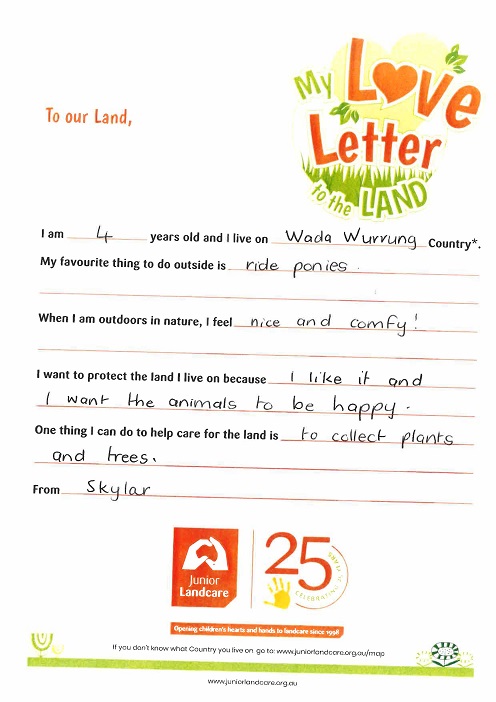 My Love
Letter
to the LAND
To our Land,
I am 4 years old and I live on Wada Wurrung Country*.
My favourite thing to do outside is ride ponies.
When I am outdoors in nature, I feel nice and comfy!
I want to protect the land I live on because I like it and
I want the animals to be happy.
One thing I can do to help care for the land is to collect plants
and trees.
From Skylar
Junior
Landcare
25
CELEBRATING 25 YEARS
Opening children's hearts and hands to landcare since 1998
If you don't know what Country you live on go to: www.juniorlandcare.org.au/map
www.juniorlandcare.org.au